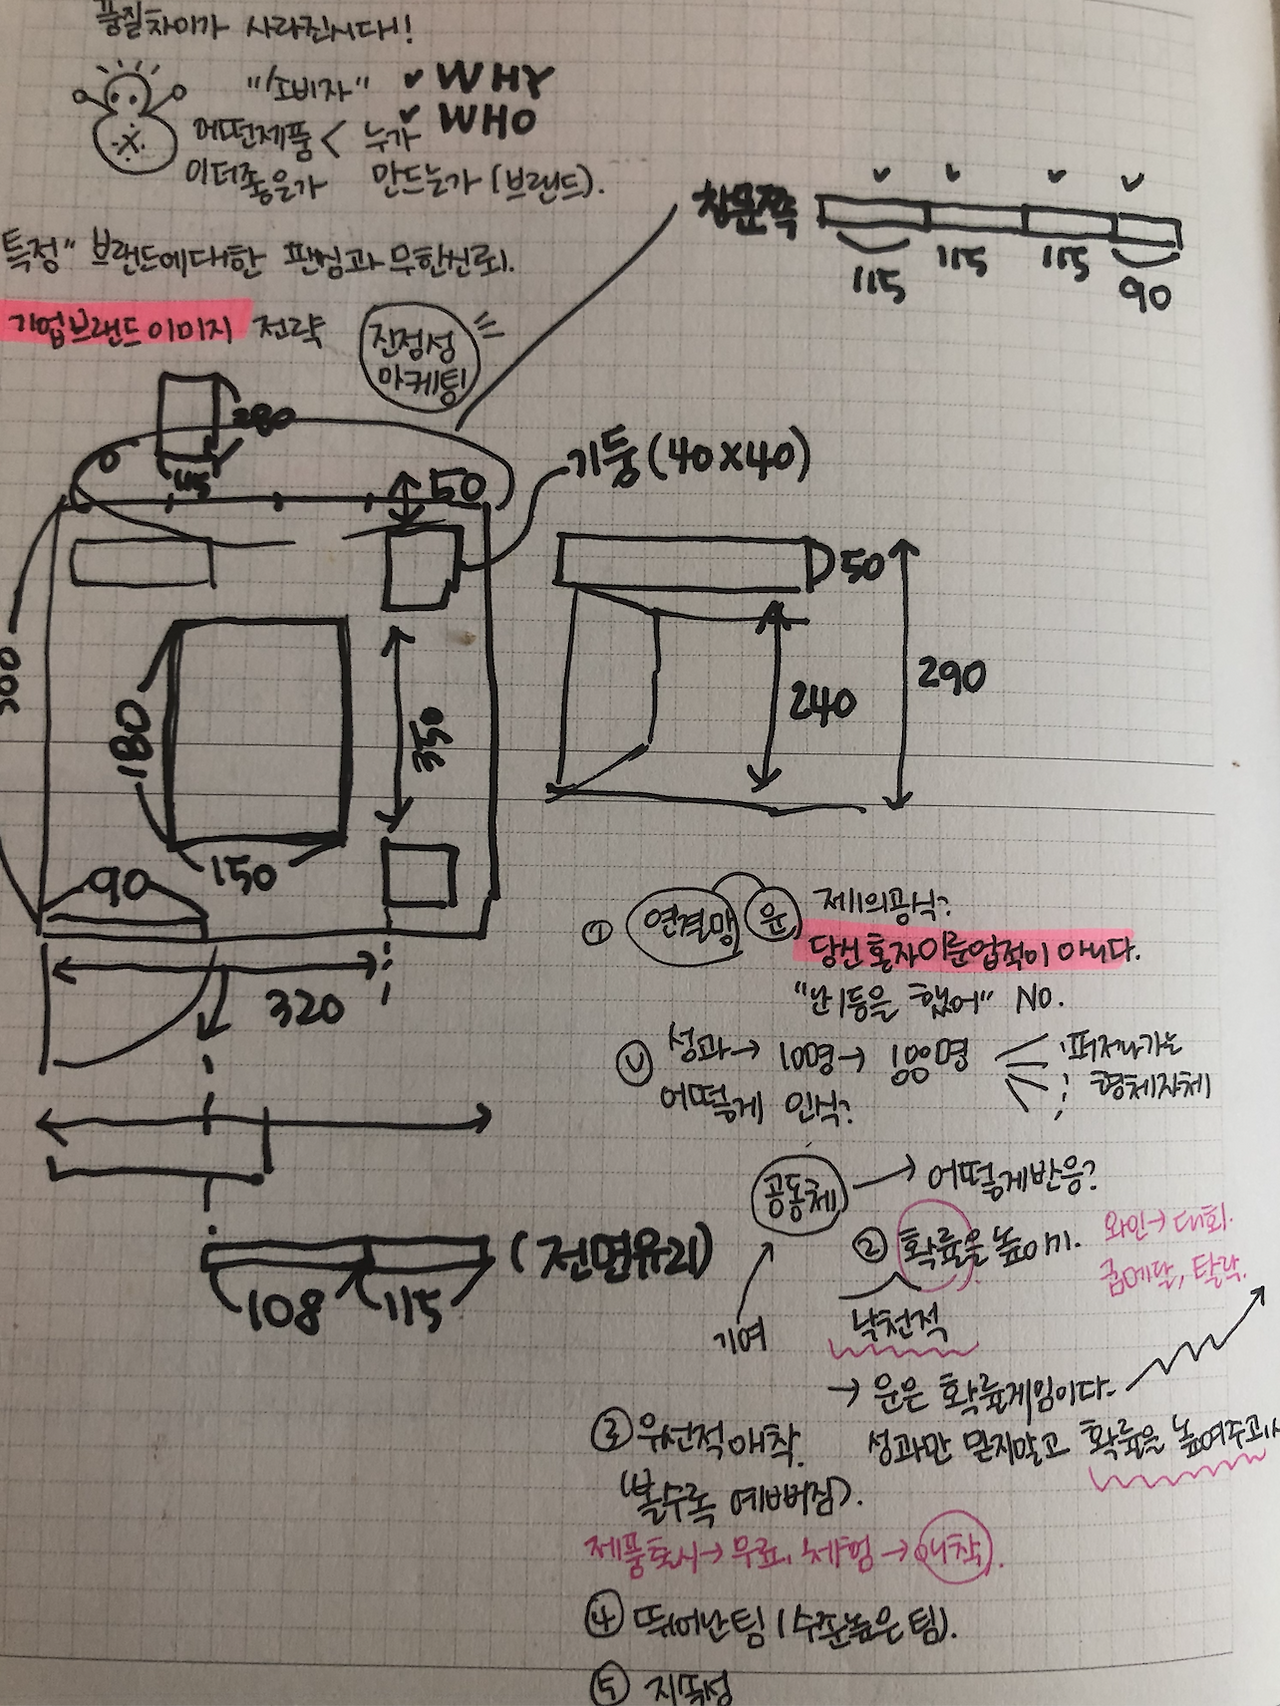 품질차이가 사라진시대!
"소비자" ✓ WHY
✓ WHO
어떤제품 < 누가
이더좋은가 만드는가 (브랜드).
특정" 브랜드에대한 팬심과 무한신뢰.
기업브랜드이미지 전략
진정성
마케팅
창문쪽
115 115 115 90
280
115
50
기둥 (40×40)
50
290
240
180
350
150
90
320
(전면유리)
108 115
① 연결망 운 제1의공식?
당신혼자이룬업적이 아니다.
"난1등을 했어" NO.
성과 → 100명 →
어떻게 인식?
퍼져나가는
형체자체
공동체 → 어떻게반응?
기여
② 확률을 높이기.
와인 → 대회.
금메달, 탈락.
낙천적
→ 운은 확률게임이다.
성과만 믿지말고 확률을 높여주고
③ 우선적애착.
(볼수록 예뻐짐).
제품출시 → 무료, 체험 → 애착.
④ 뛰어난팀 (수준높은팀).
⑤